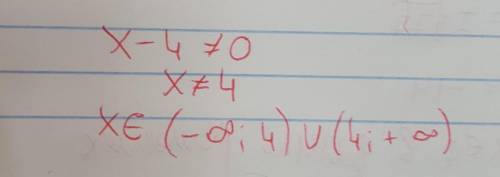 x - 4 ≠ 0
x ≠ 4
x ∈ (-∞; 4) ∪ (4; +∞)